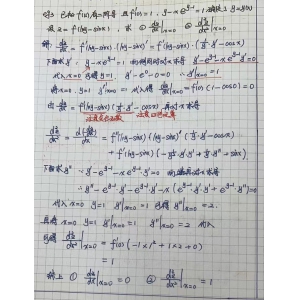 例3. 已知f(x)有二阶导, 且f'(0)=1, y-xe^{y-1}=1确定了y=y(x)
设z=f(lny-sinx), 求 ① dz/dx|x=0 ② d²z/dx²|x=0
解: dz/dx = f'(lny-sinx)·(lny-sinx)' = f'(lny-sinx)·(1/y·y'-cosx)
下面求y': y-xe^{y-1}=1 两侧同时对x求导 y'-e^{y-1}-xe^{y-1}y'=0
代入x=0 可得y=1, y'-e^0-0=0 ∴y'|x=0=1
将x=0, y=1 y'|x=0=1 代入得 dz/dx|x=0=f'(0)(1-0)=0
由 dz/dx=f'(lny-sinx)(1/y·y'-cosx) 再对x求导
d²z/dx² = d(dz/dx)/dx = f''(lny-sinx)(lny-sinx)'(1/y·y'-cosx)
+f'(lny-sinx)(-1/y²·y'·y'+1/y·y''+sinx)
下面求y'' ∵y'-e^{y-1}-xe^{y-1}·y'=0
∴y''-e^{y-1}·y'-e^{y-1}·y'-x(e^{y-1}·y'·y'+e^{y-1}·y'')=0
代入x=0 y=1 y'|x=0=1 可得y''|x=0=2.
再将x=0 y=1 y'|x=0=1 y''|x=0=2 代入
可得 d²z/dx²|x=0 = f'(0)(-1×1²+1×2+0)
=1
综上 ① dz/dx|x=0=0 ② d²z/dx²|x=0=1